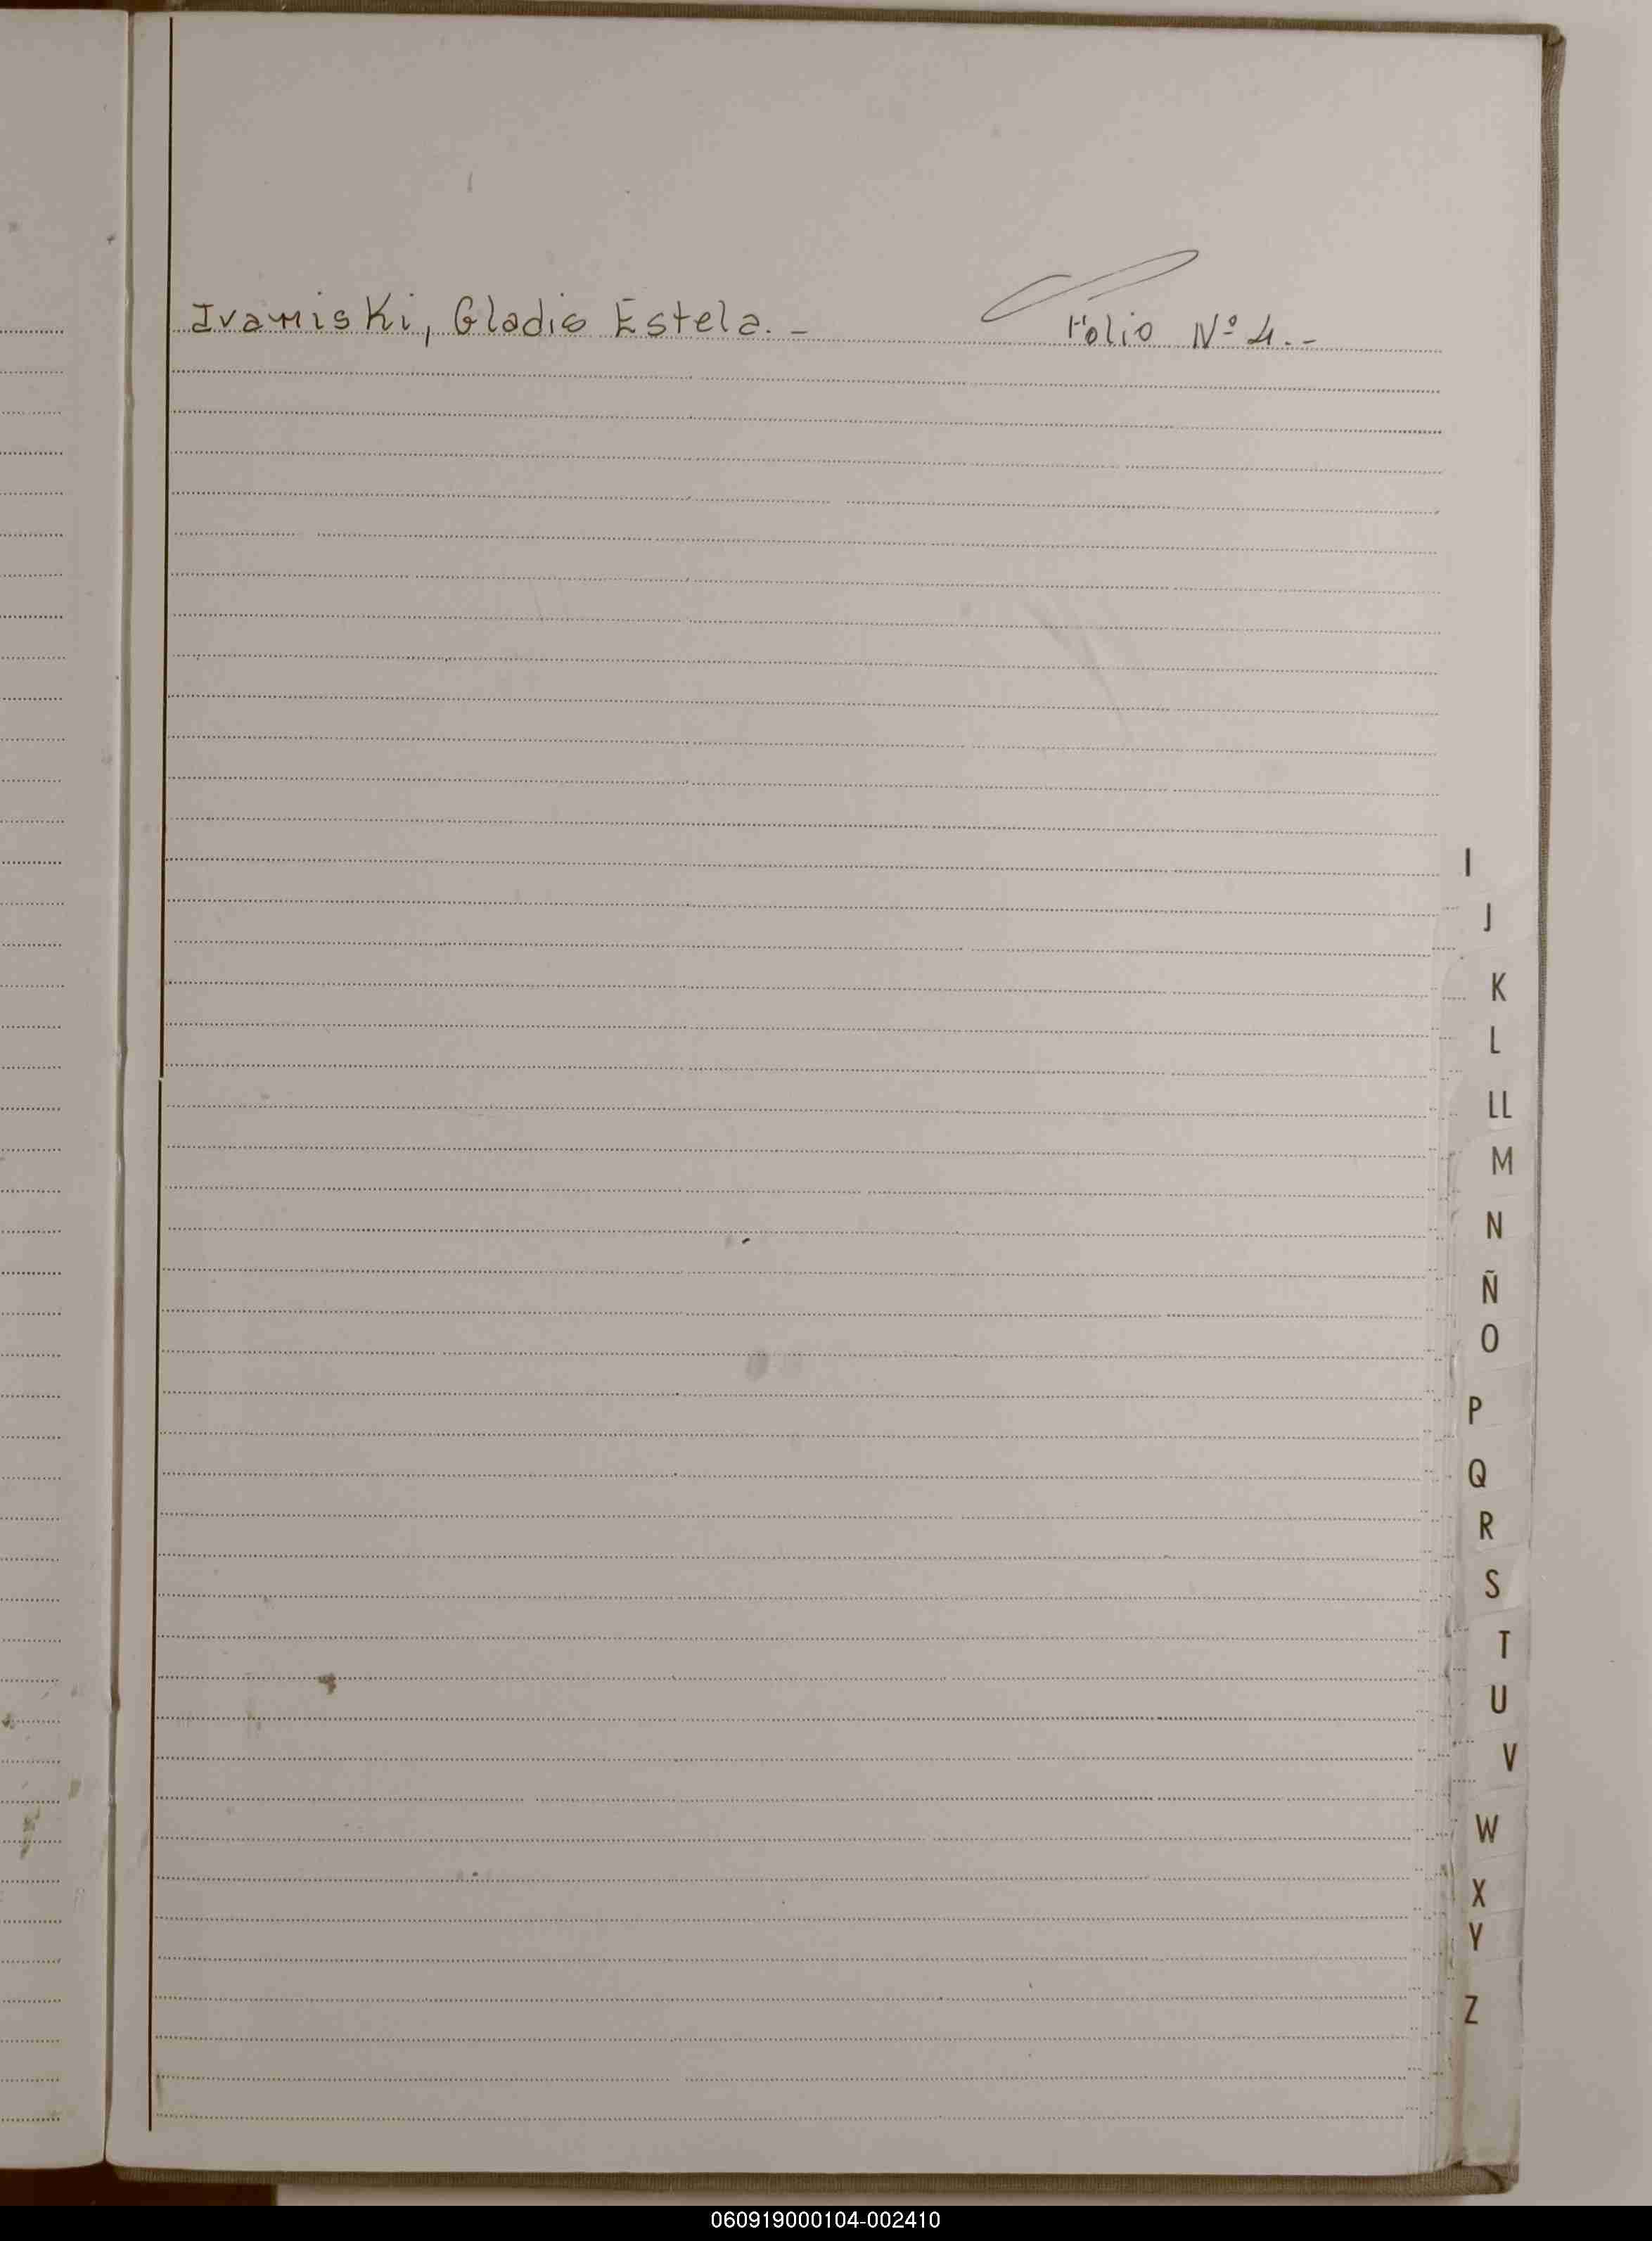 Ivaniski, Gladis Estela. - Folio Nº 4. -
I
J
K
L
LL
M
N
Ñ
O
P
Q
R
S
T
U
V
W
X
Y
Z
060919000104-002410